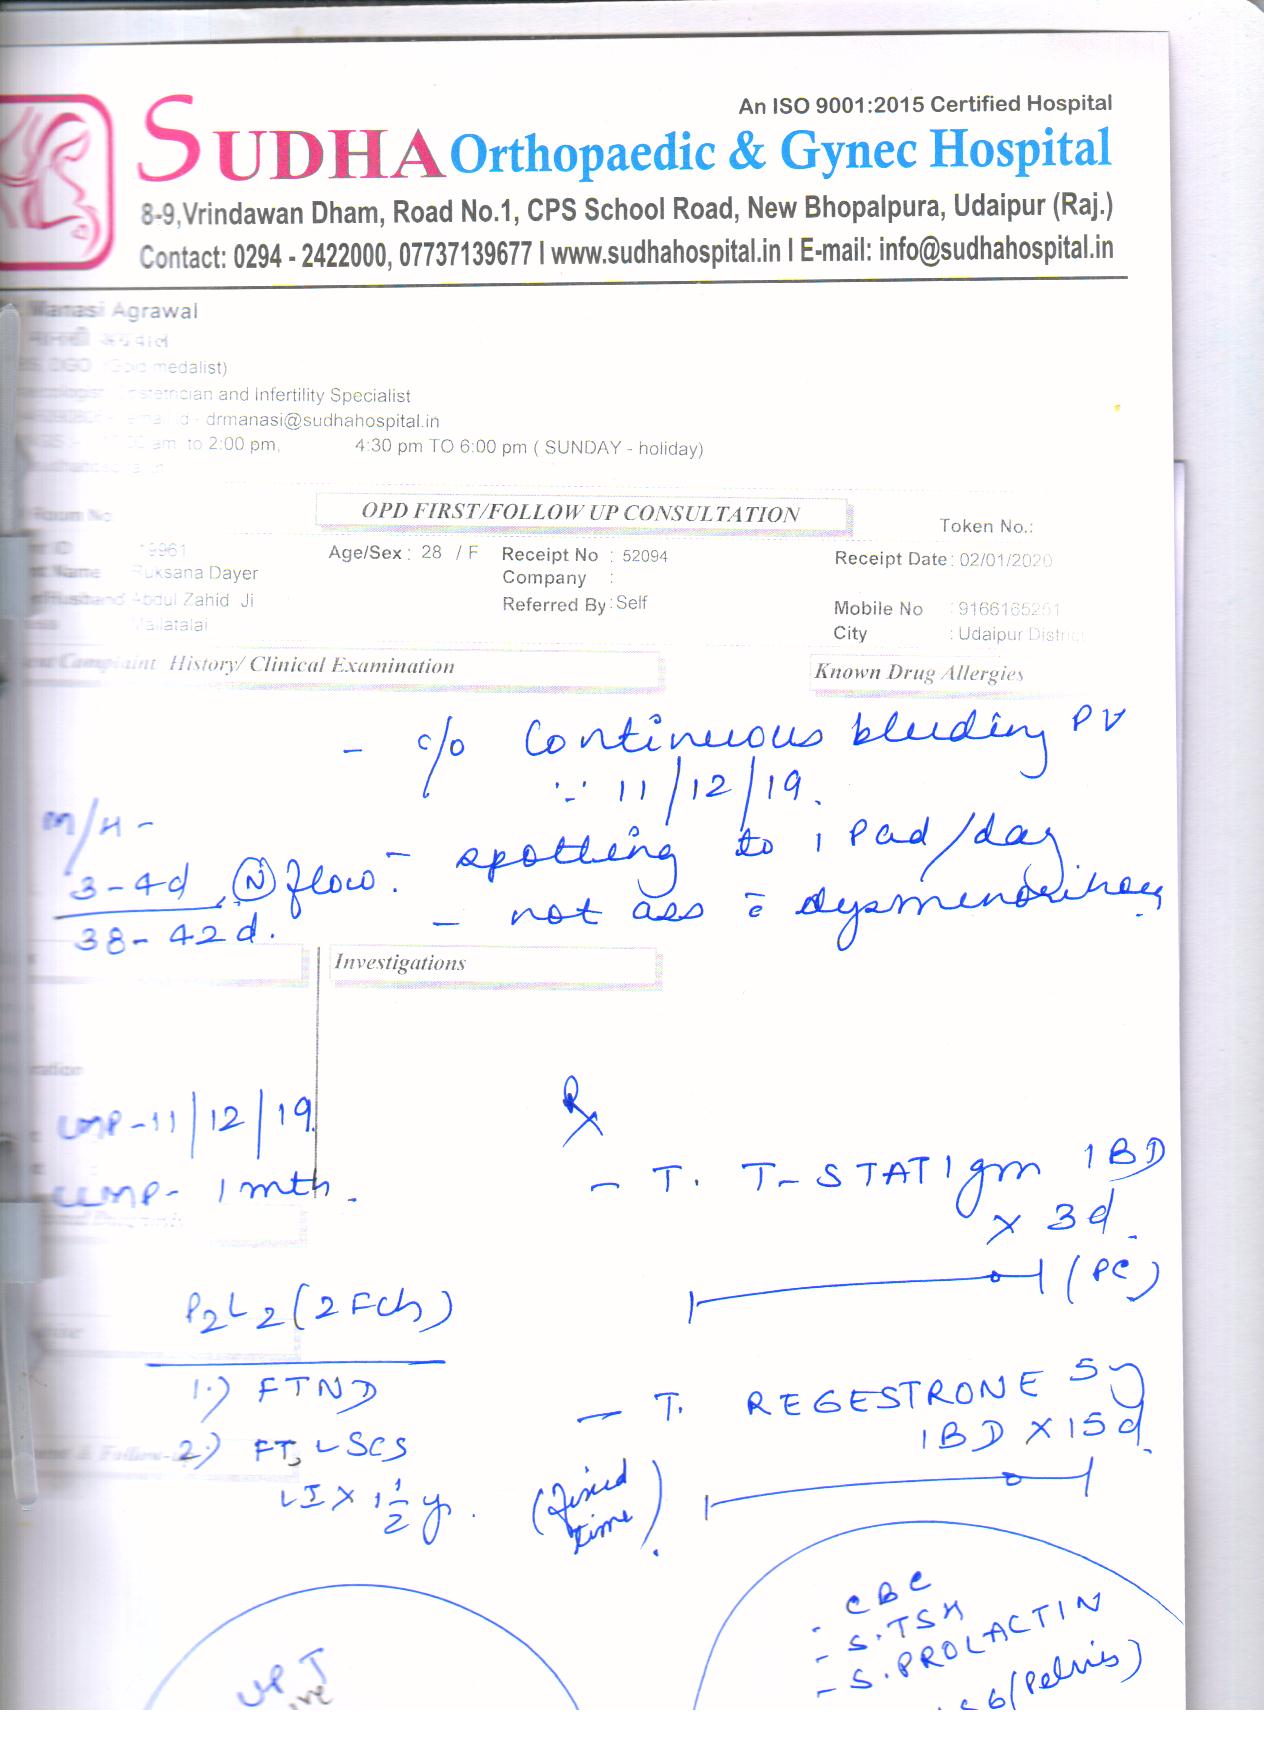 An ISO 9001:2015 Certified Hospital
SUDHA Orthopaedic & Gynec Hospital
8-9,Vrindawan Dham, Road No.1, CPS School Road, New Bhopalpura, Udaipur (Raj.)
Contact: 0294 - 2422000, 07737139677 I www.sudhahospital.in I E-mail: info@sudhahospital.in
Manasi Agrawal
मानसी अग्रवाल
DGO (Gold medalist)
and Infertility Specialist
drmanasi@sudhahospital.in
to 2:00 pm, 4:30 pm TO 6:00 pm ( SUNDAY - holiday)
OPD FIRST/FOLLOW UP CONSULTATION
Token No.:
Room No
ID 19961 Age/Sex : 28 / F Receipt No : 52094 Receipt Date : 02/01/2020
Name Ruksana Dayer Company :
Husband Abdul Zahid Ji Referred By : Self Mobile No : 9166165251
City : Udaipur District
Complaint History/ Clinical Examination
Known Drug Allergies
- c/o Continuous bleeding PV
∵ 11/12/19.
M/H -
- spotting to 1 Pad/day
3-4d, (N) flow.
- not ass c̄ dysmenorrhoea
38-42d.
Investigations
LMP - 11/12/19.
Rx
- T. T-STAT 1gm 1 BD
LLMP - 1 mth.
x 3d.
(PC)
P2L2 (2 Fch)
1.) FTND
- T. REGESTRONE 5mg
1 BD X 15d.
2.) FT, LSCS
LI X 1 1/2 y.
(fixed time).
- CBC
- S.TSH
- S.PROLACTIN
(Pelvis)
UPT